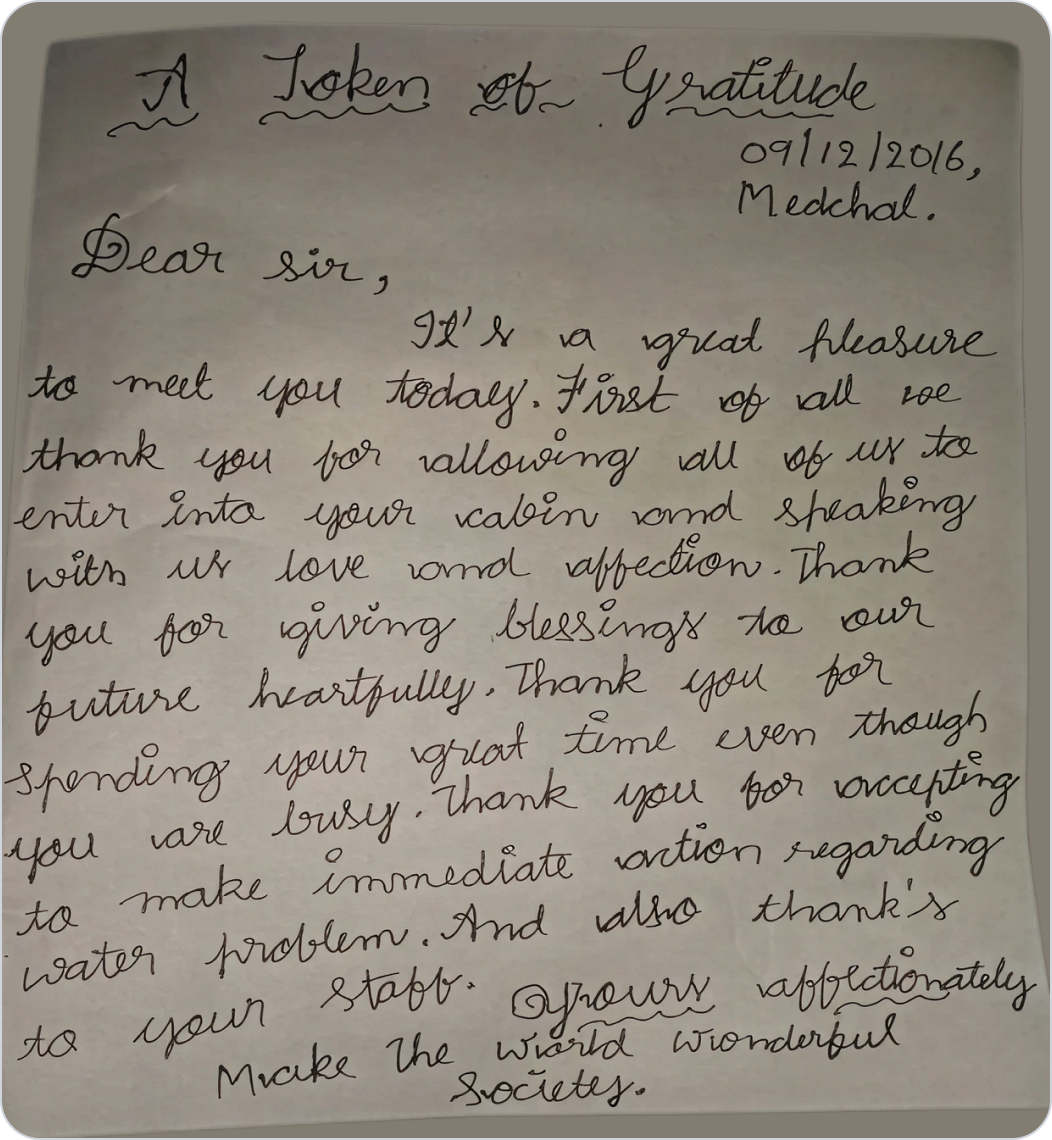 A Token of Gratitude
09/12/2016,
Medchal.
Dear sir,
It's a great pleasure
to meet you today. First of all we
thank you for allowing all of us to
enter into your cabin and speaking
with us love and affection. Thank
you for giving blessings to our
future heartfully. Thank you for
spending your great time even though
you are busy. Thank you for accepting
to make immediate action regarding
water problem. And also thank's
to your staff. Yours affectionately
Make The World Wonderful
Society.